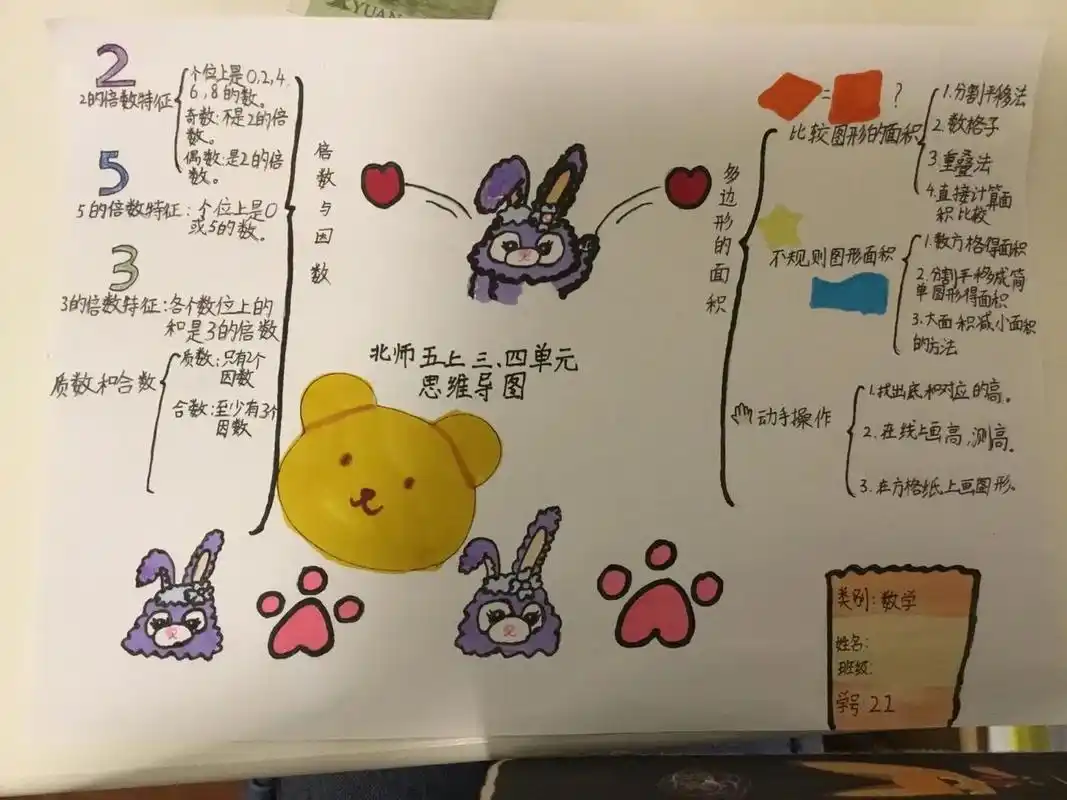 YUAN
2
2的倍数特征
个位上是0,2,4,
6,8的数。
奇数:不是2的倍
数。
偶数:是2的倍
数。
5
5的倍数特征:个位上是0
或5的数。
3
3的倍数特征:各个数位上的
和是3的倍数
质数和合数
质数:只有2个
因数
合数:至少有3个
因数
倍数与因数
北师五上三、四单元
思维导图
多边形的面积
= ?
比较图形的面积
1.分割平移法
2.数格子
3.重叠法
4.直接计算面
积比较
不规则图形面积
1.数方格得面积
2.分割平移成简
单图形得面积
3.大面积减小面积
的方法
动手操作
1.找出底和对应的高。
2.在线上画高,测高。
3.在方格纸上画图形。
类别:数学
姓名:
班级:
学号 22